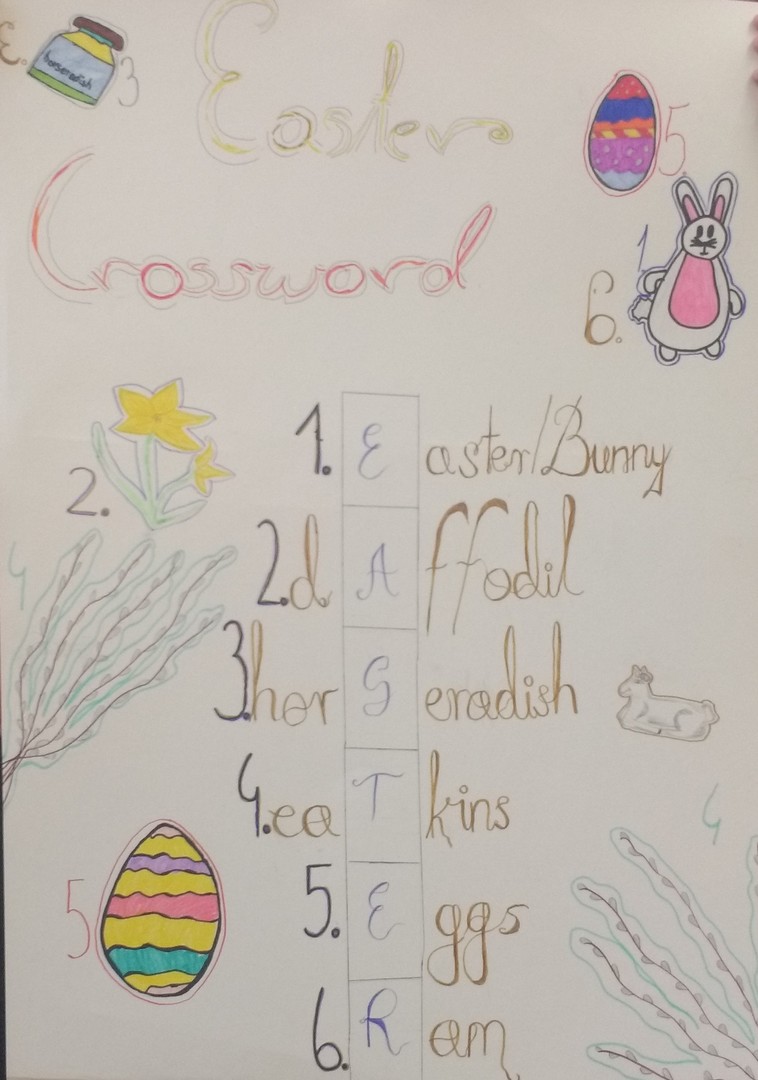 3.
horseradish
3
Easter
5.
Crossword
1
6.
1. Easter/Bunny
2.
2.dAffodil
4
3.horSeradish
4.eaTkins
4
5
5. Eggs
6. Ram